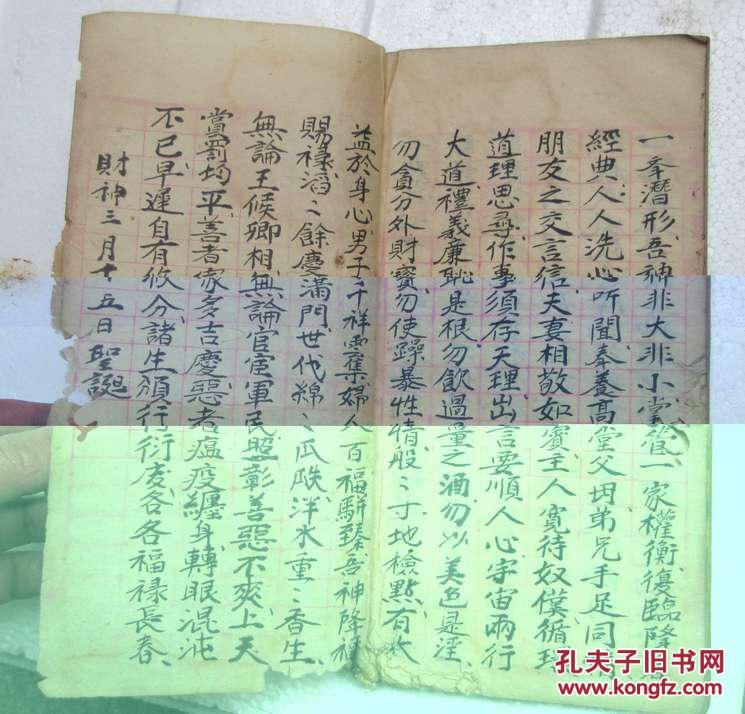 一峯潛形吾神非大非小掌管一家權衡復臨降
經典人人洗心听聞奉養高堂父母弟兄手足同
朋友之交言信夫妻相敬如賓主人寬待奴僕循環
道理思尋作事須存天理出言要順人心宇宙兩行
大道禮義廉恥是根勿飲過量之酒勿以美色是淫、
勿貪分外財寶勿使躁暴性情般〻寸地檢點有
益於身心男子千祥雲集婦人百福駢臻吾神降福
賜祿滔〻餘慶滿門世代綿〻瓜瓞泮水重〻香生、
無論王候卿相無論官宦軍民照彰善惡不爽上天
賞罰均平善者家多吉慶惡者瘟疫纏身轉眼混沌
不已早遲自有攸分諸生須行衍慶各各福祿長春、
財神三月十五日聖誕
孔夫子旧书网
www.kongfz.com